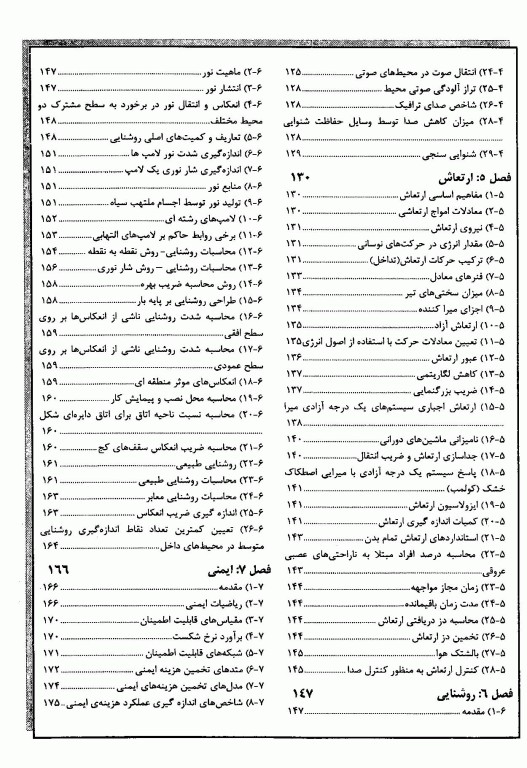 ۲۴-۴) انتقال صوت در محیط‌های صوتی ........ ۱۲۵
۲۵-۴) تراز آلودگی صوتی محیط ........ ۱۲۸
۲۶-۴) شاخص صدای ترافیک ........ ۱۲۸
۲۸-۴) میزان کاهش صدا توسط وسایل حفاظت شنوایی
........ ۱۲۸
۲۹-۴) شنوایی سنجی ........ ۱۲۹
فصل ۵: ارتعاش ۱۳۰
۱-۵) مفاهیم اساسی ارتعاش ........ ۱۳۰
۲-۵) معادلات امواج ارتعاشی ........ ۱۳۰
۴-۵) نیروی ارتعاش ........ ۱۳۱
۵-۵) مقدار انرژی در حرکت‌های نوسانی ........ ۱۳۱
۶-۵) ترکیب حرکات ارتعاش(تداخل) ........ ۱۳۱
۷-۵) فنرهای معادل ........ ۱۳۳
۸-۵) میزان سختی‌های تیر ........ ۱۳۴
۹-۵) اجزای میرا کننده ........ ۱۳۴
۱۰-۵) ارتعاش آزاد ........ ۱۳۵
۱۱-۵) تعیین معادلات حرکت با استفاده از اصول انرژی ۱۳۵
۱۲-۵) عبور ارتعاش ........ ۱۳۶
۱۳-۵) کاهش لگاریتمی ........ ۱۳۷
۱۴-۵) ضریب بزرگنمایی ........ ۱۳۷
۱۵-۵) ارتعاش اجباری سیستم‌های یک درجه آزادی میرا
........ ۱۳۸
۱۶-۵) نامیزانی ماشین‌های دورانی ........ ۱۴۰
۱۷-۵) جداسازی ارتعاش و ضریب انتقال ........ ۱۴۰
۱۸-۵) پاسخ سیستم یک درجه آزادی با میرایی اصطکاک
خشک (کولمب) ........ ۱۴۱
۱۹-۵) ایزولاسیون ارتعاش ........ ۱۴۱
۲۰-۵) کمیات اندازه گیری ارتعاش ........ ۱۴۱
۲۱-۵) استانداردهای ارتعاش تمام بدن ........ ۱۴۳
۲۲-۵) محاسبه درصد افراد مبتلا به ناراحتی‌های عصبی
عروقی ........ ۱۴۳
۲۳-۵) زمان مجاز مواجهه ........ ۱۴۴
۲۴-۵) مدت زمان باقیمانده ........ ۱۴۴
۲۵-۵) محاسبه دز دریافتی ارتعاش ........ ۱۴۴
۲۶-۵) تخمین دز ارتعاش ........ ۱۴۴
۲۷-۵) بالشتک هوا ........ ۱۴۵
۲۸-۵) کنترل ارتعاش به منظور کنترل صدا ........ ۱۴۵
فصل ۶: روشنایی ۱۴۷
۱-۶) مقدمه ........ ۱۴۷
۲-۶) ماهیت نور ........ ۱۴۷
۳-۶) انتشار نور ........ ۱۴۷
۴-۶) انعکاس و انتقال نور در برخورد به سطح مشترک دو
محیط مختلف ........ ۱۴۸
۵-۶) تعاریف و کمیت‌های اصلی روشنایی ........ ۱۴۸
۶-۶) اندازه‌گیری شدت نور لامپ ها ........ ۱۵۱
۷-۶) اندازه‌گیری شار نوری یک لامپ ........ ۱۵۱
۸-۶) منابع نور ........ ۱۵۱
۹-۶) تولید نور توسط اجسام ملتهب سیاه ........ ۱۵۱
۱۰-۶) لامپ‌های رشته ای ........ ۱۵۲
۱۱-۶) برخی روابط حاکم بر لامپ‌های التهابی ........ ۱۵۳
۱۲-۶) محاسبات روشنایی- روش نقطه به نقطه ........ ۱۵۴
۱۳-۶) محاسبات روشنایی – روش شار نوری ........ ۱۵۶
۱۴-۶) روش محاسبه ضریب بهره ........ ۱۵۸
۱۵-۶) طراحی روشنایی بر پایه بار ........ ۱۵۸
۱۶-۶) محاسبه شدت روشنایی ناشی از انعکاس‌ها بر روی
سطح افقی ........ ۱۵۹
۱۷-۶) محاسبه شدت روشنایی ناشی از انعکاس‌ها بر روی
سطح عمودی ........ ۱۵۹
۱۸-۶) انعکاس‌های موثر منطقه ای ........ ۱۵۹
۱۹-۶) محاسبه محل نصب و پیمایش کار ........ ۱۶۰
۲۰-۶) محاسبه نسبت ناحیه اتاق برای اتاق دایره‌ای شکل
........ ۱۶۰
۲۱-۶) محاسبه ضریب انعکاس سقف‌های کج ........ ۱۶۰
۲۲-۶) روشنایی طبیعی ........ ۱۶۱
۲۳-۶) محاسبات روشنایی طبیعی ........ ۱۶۱
۲۴-۶) محاسبات روشنایی معابر ........ ۱۶۳
۲۵-۶) اندازه گیری ضریب انعکاس ........ ۱۶۳
۲۶-۶) تعیین کمترین تعداد نقاط اندازه‌گیری روشنایی
متوسط در محیط‌های داخل ........ ۱۶۴
فصل ۷: ایمنی ۱۶۶
۱-۷) مقدمه ........ ۱۶۶
۲-۷) ریاضیات ایمنی ........ ۱۶۶
۳-۷) مقیاس‌های قابلیت اطمینان ........ ۱۷۰
۴-۷) برآورد نرخ شکست ........ ۱۷۰
۵-۷) شبکه‌های قابلیت اطمینان ........ ۱۷۱
۶-۷) متدهای تخمین هزینه ایمنی ........ ۱۷۲
۷-۷) مدل‌های تخمین هزینه‌های ایمنی ........ ۱۷۴
۸-۷) شاخص‌های اندازه گیری عملکرد هزینه‌ی ایمنی .. ۱۷۵